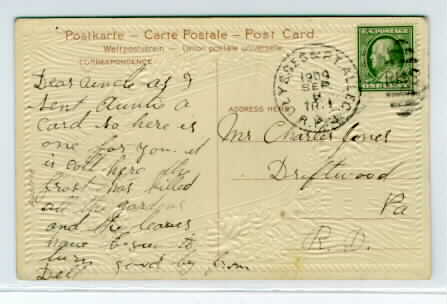 Postkarte – Carte Postale – Post Card
Weltpostverein – Union postale universelle
CORRESPONDENCE
Dear Uncle as I
sent Auntie a
Card so here is
one for you. it
is cold here the
frost has killed
all the gardens
and the leaves
have begun to
turn good by from
Dell
U.S. POSTAGE
ONE CENT
ULYSSES
1909
SEP
R.D.
ADDRESS HERE
Mr Charles Jones
Driftwood
Pa
R. D.